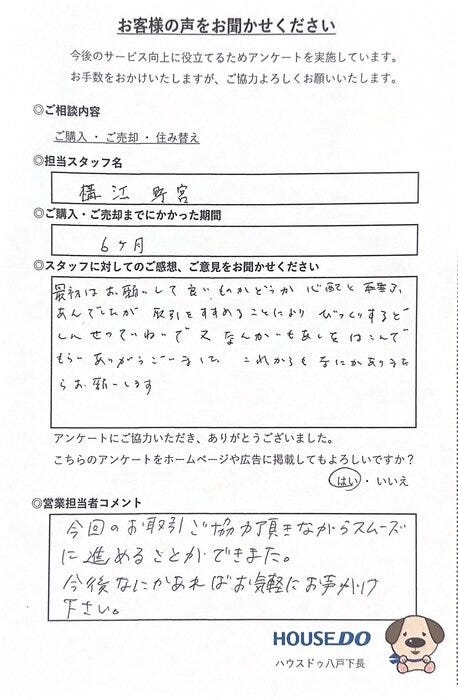 お客様の声をお聞かせください
今後のサービス向上に役立てるためアンケートを実施しています。
お手数をおかけしますが、ご協力よろしくお願いいたします。
◎ご相談内容
ご購入・ご売却・住み替え
◎担当スタッフ名
江 野宮
◎ご購入・ご売却までにかかった期間
6ヶ月
◎スタッフに対してのご感想、ご意見をお聞かせください
最初はお願いして良いものかどうか 心配と
でしたが 取引をすすめることにより びっくりするど
しんせつていねいで 又 なんかいもあしをはこんで
もらいありがうございました これからもなにかありまし
らお願いします
アンケートにご協力いただき、ありがとうございました。
こちらのアンケートをホームページや広告に掲載してもよろしいですか？
はい・いいえ
◎営業担当者コメント
今回のお取引ご協力頂きながらスムーズ
に進めることができました。
今後なにかあればお気軽にお声がけ
下さい。
HOUSEDO
ハウスドゥ八戸下長